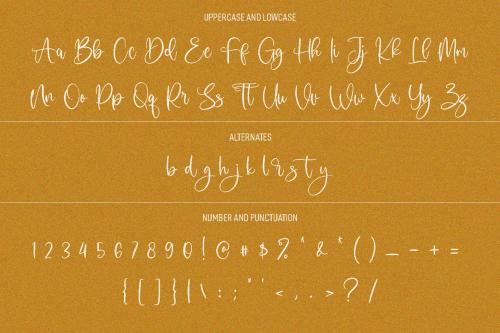 UPPERCASE AND LOWCASE
Aa Bb Cc Dd Ee Ff Gg Hh Ii Jj Kk Ll Mm
Nn Oo Pp Qq Rr Ss Tt Uu Vv Ww Xx Yy Zz
ALTERNATES
b d g h j k l r s t y
NUMBER AND PUNCTUATION
1 2 3 4 5 6 7 8 9 0 ! @ # $ % ^ & * ( ) _ - + =
{ [ ] } | \ : ; " ' < , . > ? /